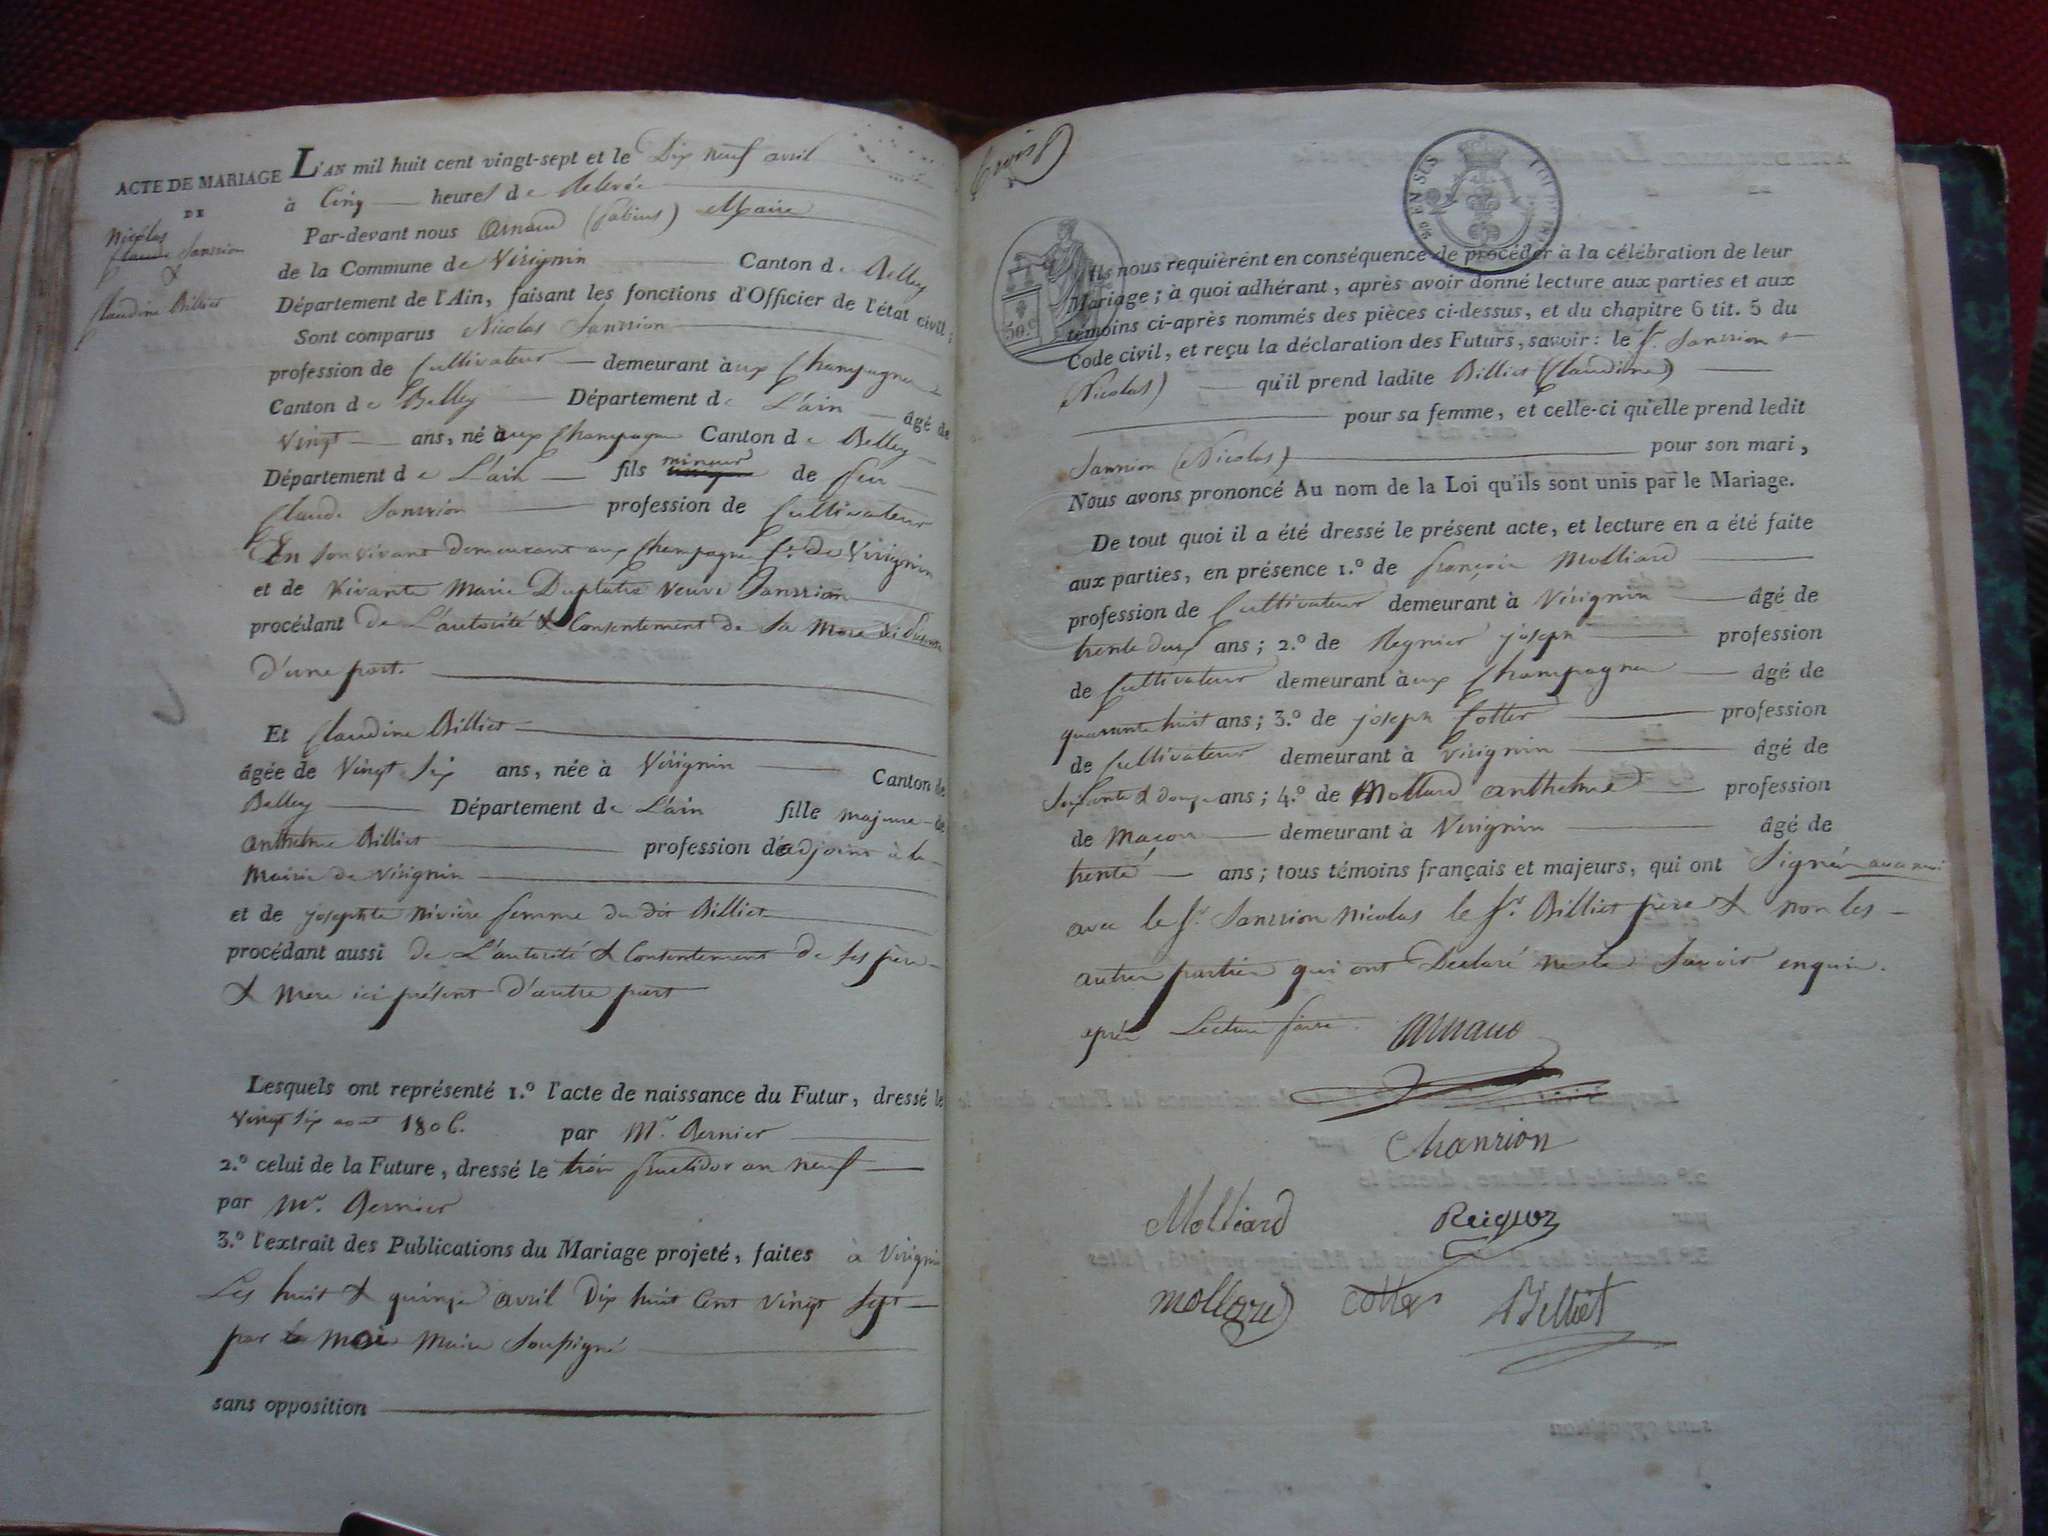 ACTE DE MARIAGE
DE
Nicolas
Claude Sanrion
&
Claudine Billiet
L'AN mil huit cent vingt-sept et le Dix neuf avril
à Cinq heures de Relevée
Par-devant nous Arnaud (fabius) Maire
de la Commune de Virignin Canton de Belley
Département de l'Ain, faisant les fonctions d'Officier de l'état civil;
Sont comparus Nicolas Sanrion
profession de Cultivateur demeurant à aux Champagnes
Canton de Belley Département de L'ain âgé de
Vingt ans, né aux Champagne Canton de Belley
Département de L'ain fils mineur de feu
Claude Sanrion profession de Cultivateur
En son vivant demeurant aux Champagne Cne de Virignin
et de Vivante Marie Duplatre veuve Sanrion
procédant de L'autorité & Consentement de Sa Mère ici présente
D'une part.
Et Claudine Billiet
âgée de Vingt Six ans, née à Virignin Canton de
Belley Département de L'ain fille majeure de
anthelme Billiet profession d'adjoint à la
Mairie de Virignin
et de josephte Rivière femme du dit Billiet
procédant aussi de L'autorité & Consentement de ses père
& Mère ici présent D'autre part
Lesquels ont représenté 1.º l'acte de naissance du Futur, dressé le
Vingt Six aout 1806. par Mr. Bernier
2.º celui de la Future, dressé le trois fructidor an neuf
par Mr. Bernier
3.º l'extrait des Publications du Mariage projeté, faites à Virignin
Les huit & quinze avril Dix huit Cent Vingt Sept
par moi Maire Soussigné
sans opposition
50 c
EN SUS
Ils nous requièrent en conséquence de procéder à la célébration de leur
Mariage; à quoi adhérant, après avoir donné lecture aux parties et aux
témoins ci-après nommés des pièces ci-dessus, et du chapitre 6 tit. 5 du
Code civil, et reçu la déclaration des Futurs, savoir: le Sr. Sanrion
(Nicolas) qu'il prend ladite Billiet (Claudine)
pour sa femme, et celle-ci qu'elle prend ledit
Sanrion (Nicolas) pour son mari,
Nous avons prononcé Au nom de la Loi qu'ils sont unis par le Mariage.
De tout quoi il a été dressé le présent acte, et lecture en a été faite
aux parties, en présence 1.º de françois Molliard
profession de Cultivateur demeurant à Virignin âgé de
trente deux ans; 2.º de Regnier joseph profession
de Cultivateur demeurant à aux Champagne âgé de
quarante huit ans; 3.º de joseph Cotter profession
de Cultivateur demeurant à Virignin âgé de
Soixante & douze ans; 4.º de Mollard anthelme profession
de Macon demeurant à Virignin âgé de
trente ans; tous témoins français et majeurs, qui ont Signés
avec le Sr. Sanrion Nicolas le Sr. Billiet père & non les
autres parties qui ont Déclaré ne le Savoir enquis.
après Lecture faire. Arnaud
Chanrion
Molliard
mollard Cotter Billiet